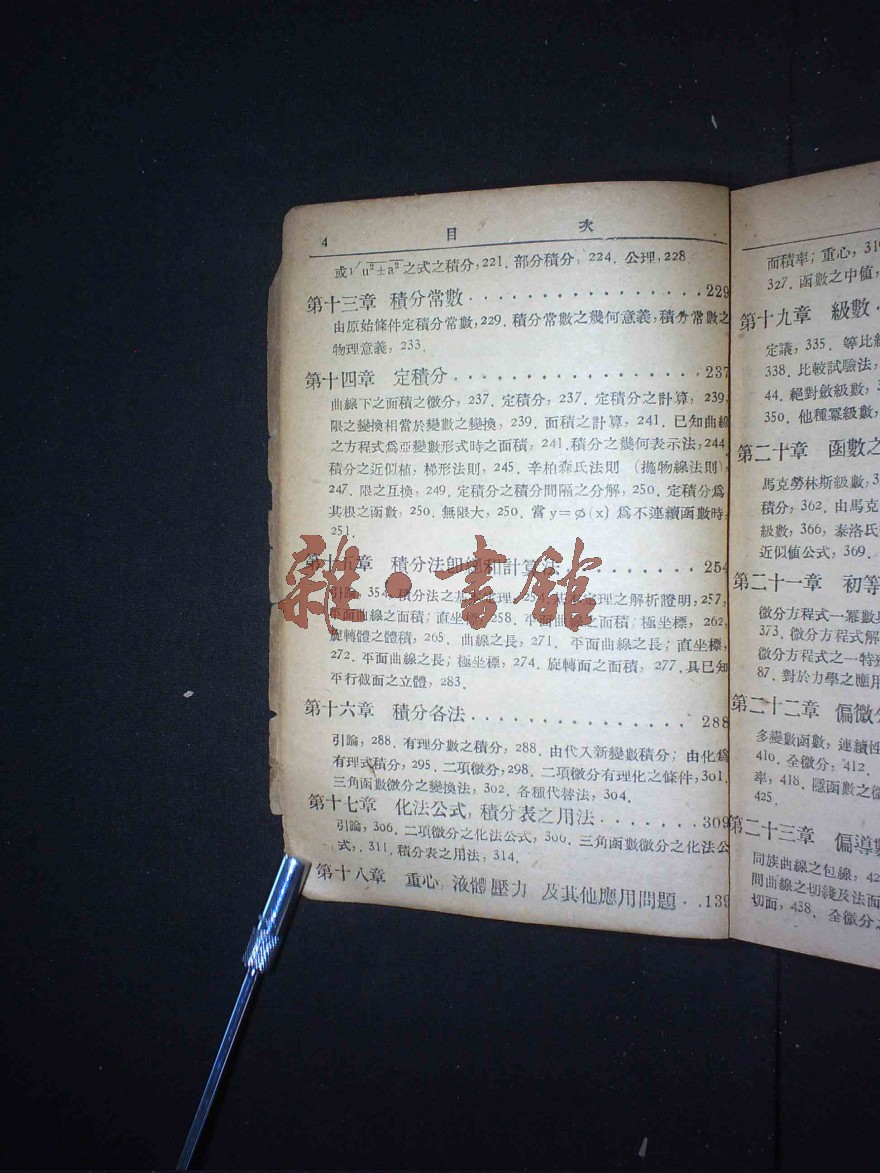 4 目 次
或√u²±a² 之式之積分,221. 部分積分, 224. 公理,228
第十三章 積分常數 229
由原始條件定積分常數,229. 積分常數之幾何意義,積分常數之
物理意義,233.
第十四章 定積分 237
曲線下之面積之微分, 237. 定積分, 237. 定積分之計算, 239,
限之變換相當於變數之變換, 239. 面積之計算, 241. 已知曲線
之方程式爲亞變數形式時之面積, 241.積分之幾何表示法,244.
積分之近似植,梯形法則, 245. 辛柏森氏法則 (拋物線法則),
247. 限之互換, 249. 定積分之積分間隔之分解, 250. 定積分爲
其根之函數, 250. 無限大, 250. 當 y=φ(x) 爲不連續函數時,
251.
第十五章 積分法卽總和計算法 254
引論, 354. 積分法之基本定理, 254. 定理之解析證明, 257,
平面曲線之面積; 直坐標, 258. 平面曲線之面積; 極坐標, 262,
旋轉體之體積, 265. 曲線之長, 271. 平面曲線之長; 直坐標,
272. 平面曲線之長; 極坐標, 274. 旋轉面之面積, 277. 具已知
平行截面之立體, 283.
第十六章 積分各法 288
引論, 288. 有理分數之積分, 288. 由代入新變數積分; 由化爲
有理式積分, 295. 二項微分, 298. 二項微分有理化之條件, 301.
三角函數微分之變換法, 302. 各種代替法, 304.
第十七章 化法公式,積分表之用法 309
引論, 306. 二項微分之化法公式, 306. 三角函數微分之化法公
式, 311. 積分表之用法, 314.
第十八章 重心,液體壓力 及其他應用問題 139
而積率; 重心, 319
327. 函數之中值,
第十九章 級數
定議, 335. 等比
338. 比較試驗法,
44. 絕對斂級數,
350. 他種冪級數,
第二十章 函數之
馬克勞林斯級數,3
積分, 362. 由馬克
級數, 366, 泰洛氏
近似值公式, 369.
第二十一章 初等
微分方程式一冪數
373. 微分方程式解
微分方程式之一特
87. 對於力學之應用
第二十二章 偏微分
多變數函數, 連續性
410. 全微分, 412.
率, 418. 隱函數之微
425.
第二十三章 偏導數
同族曲線之包線, 42
間曲線之切綫及法面
切面, 438. 全微分之
雜·書館